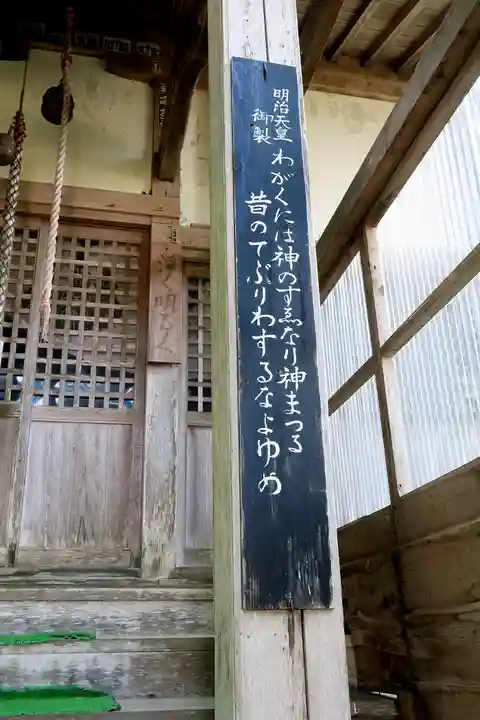 明治天皇
御製
わがくには神のすゑなり神まつる
昔のてぶりわするなよゆめ